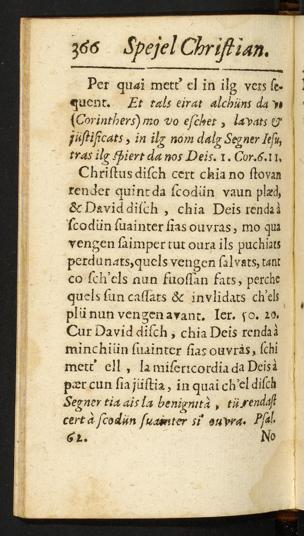 366 Spejel Christian.
Per quai mett' el in ilg vers se-
quent. Et tals eirat alchüns da vo
(Corinthers) mo vo eschet, lavats &
justificats, in ilg nom dalg Segner Iesu,
tras ilg spiert da nos Deis. 1. Cor. 6. 11.
Christus disch cert chia no stovan
render quint da scodün vaun plæd,
& David disch, chia Deis renda à
scodün suainter sias ouvras, mo qua
vengen saimper tut oura ils puchiats
perdunats, quels vengen salvats, tant
co sch'els nun fuossan fats, perche
quels sun cassats & invlidats ch'els
plü nun vengen avant. Ier. 50. 20.
Cur David disch, chia Deis renda à
minchiün suainter sias ouvras, schi
mett' ell, la misericordia da Deis à
pær cun sia jüstia, in quai ch'el disch
Segner tia ais la benignità, tü rendast
cert à scodün suainter si' ouvra. Psal.
62. No